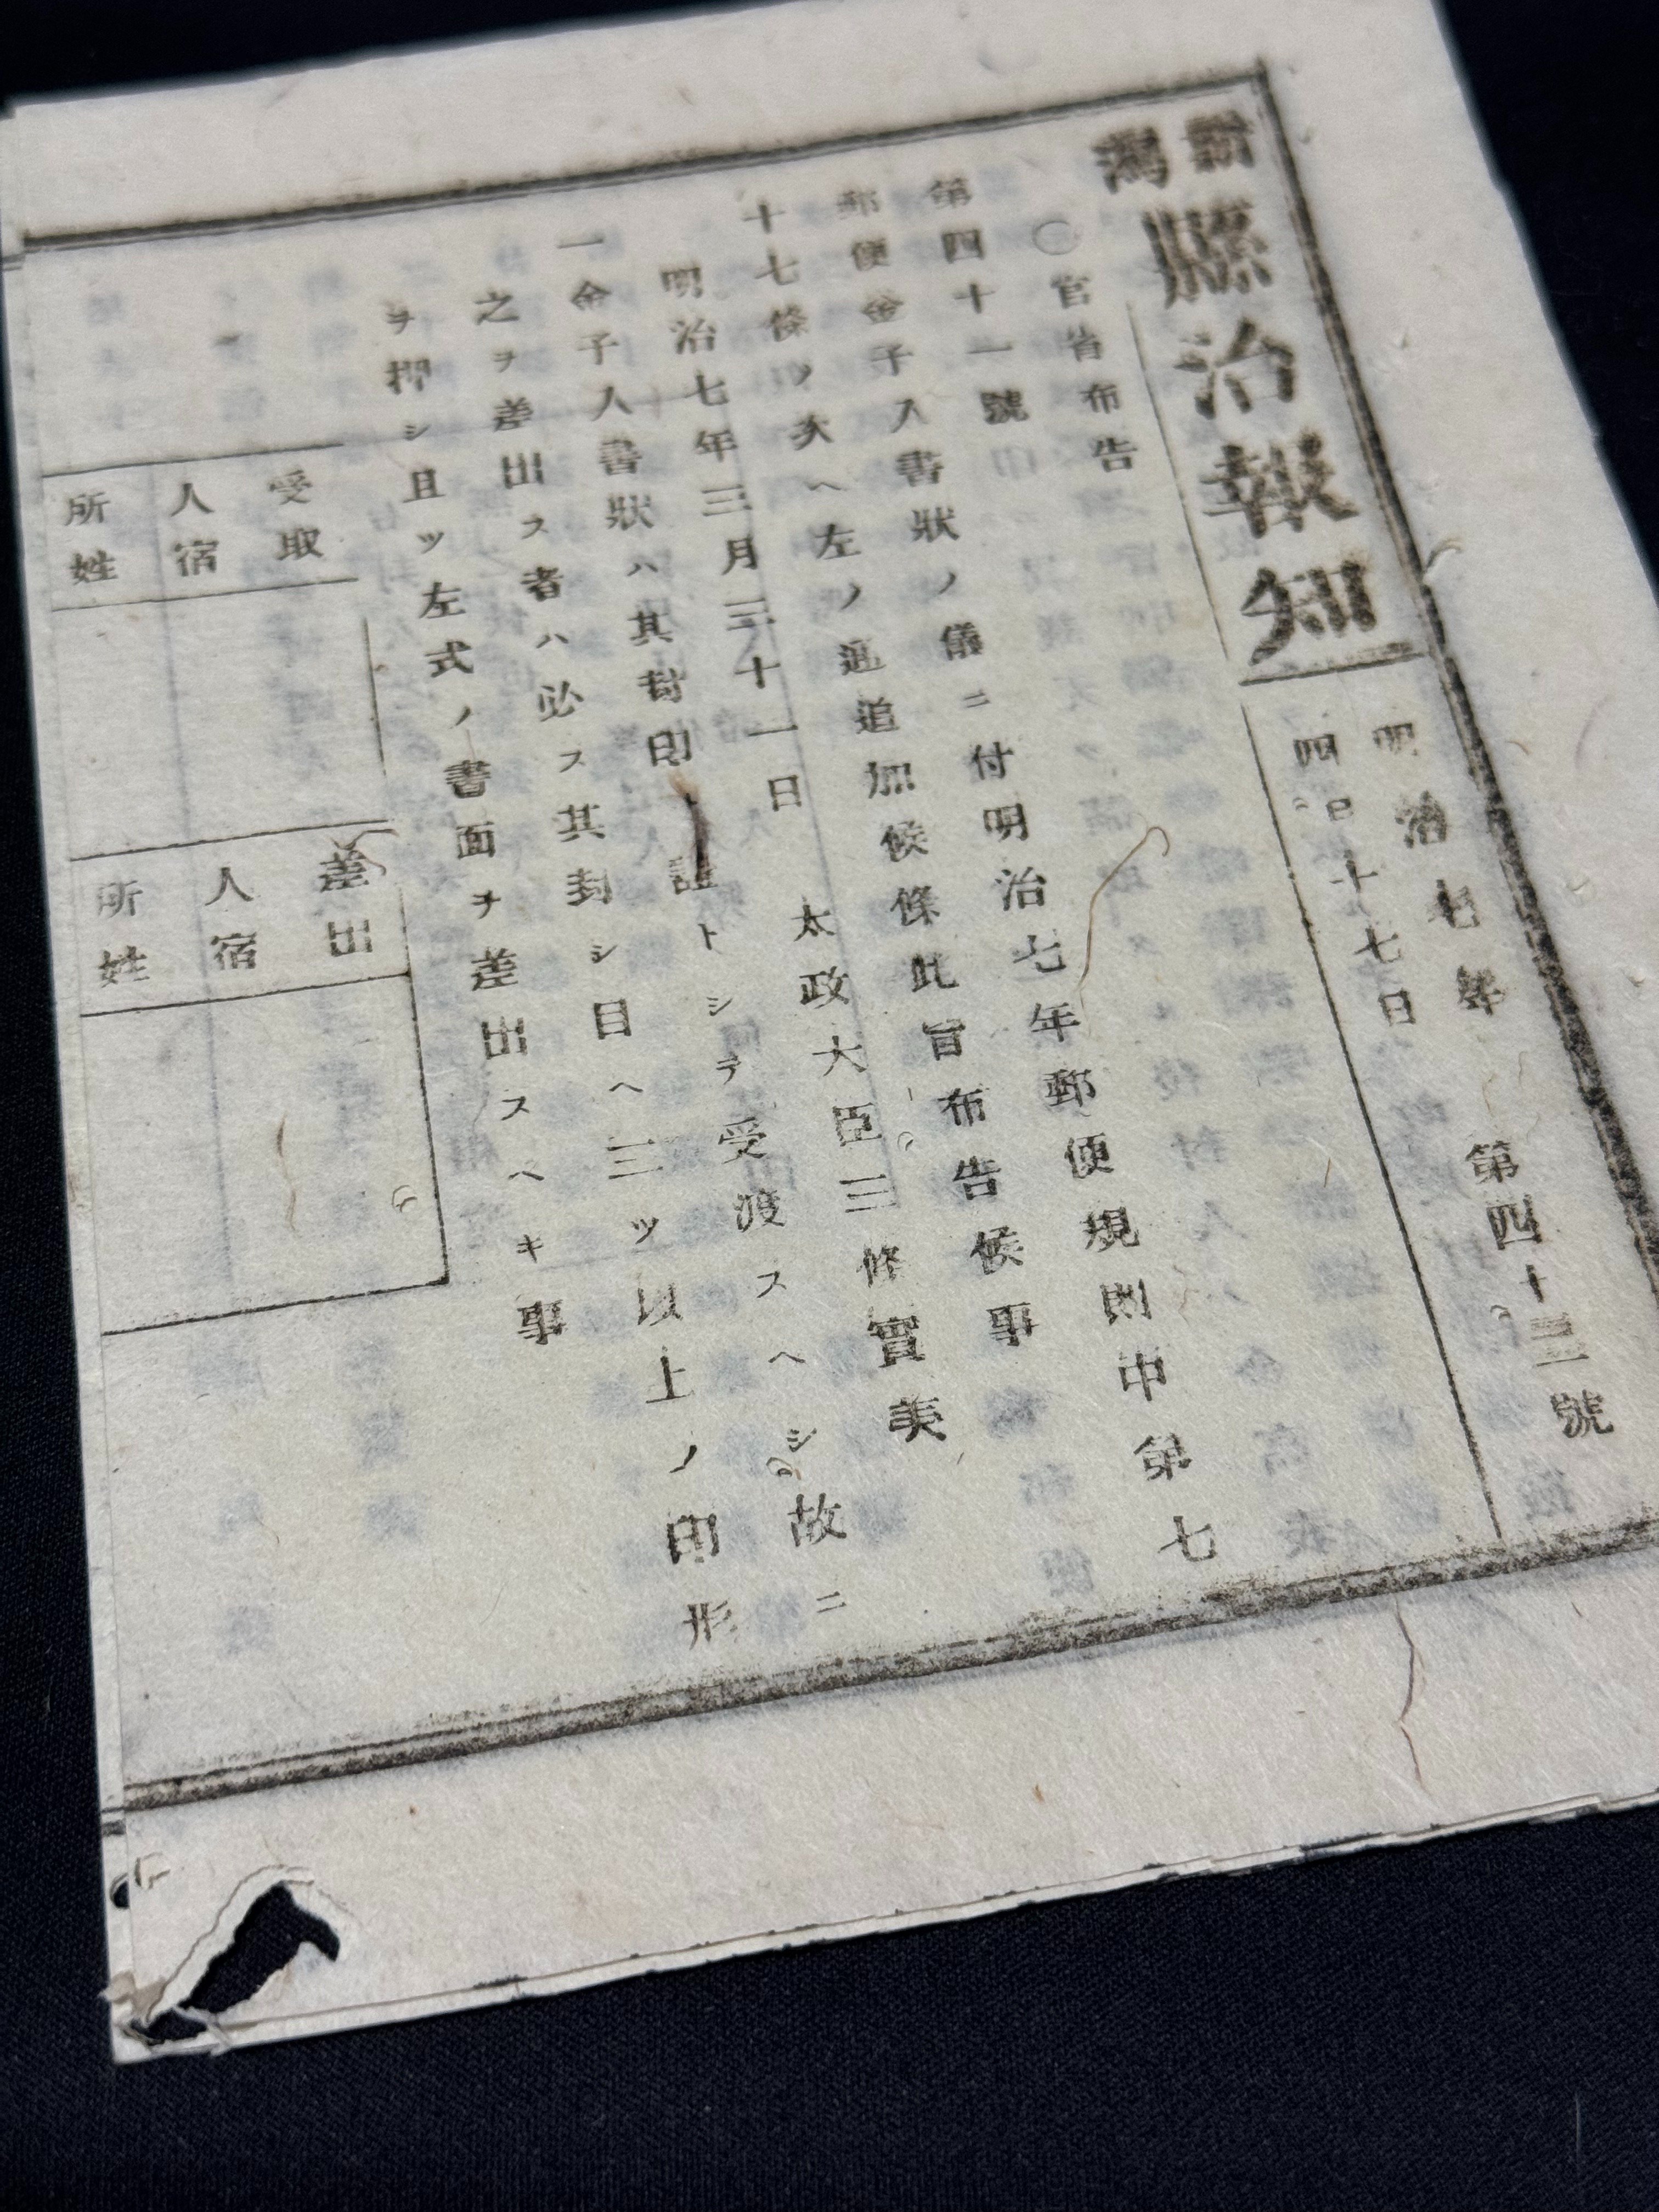 新潟縣治報知
明治七年
四月十七日
第四十三號
〇官省布告
第四十一號
郵便金子入書狀ノ儀ニ付明治七年郵便規則中第七
十七條ノ次ヘ左ノ通追加候條此旨布告候事
明治七年三月三十一日　太政大臣三條實美
一金子入書狀ハ其封印 證トシテ受渡スヘシ故ニ
之ヲ差出ス者ハ必ス其封シ目ヘ三ツ以上ノ印形
ヲ押シ且ツ左式ノ書面ヲ差出スヘキ事
受取
人宿
所姓
差出
人宿
所姓